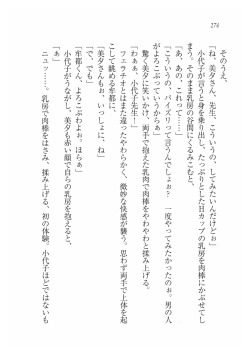 274
そのうえ、
「ね、美夕さん、先生、こういうの、してみたいんだけどぉ」
小代子が言うと身を乗り出し、たっぷりとした Hカップの乳房を肉棒にかぶせてし
まう。そのまま乳房の谷間にくるみこむと、
「あ、あの、これって……」
「こういうの、パイズリって言うんでしょぉ? 一度やってみたかったのぉ。男の人
がよろこぶっていうからぁ」
驚く美夕に笑いかけ、両手で抱えた乳肉で肉棒をやわやわと揉み上げる。
「わぁぁ、小代子先生!」
フェラチオとはまた違う、やわらかく、微妙な快感が襲う。思わず両手で上体を起
こして眺める牟都に、
「美夕さんもぉ、いっしょに、ね」
「で、でも」
「牟都くん、よろこぶわよぉ。ほらぁ」
小代子がうながし、美夕も赤い顔で自らの乳房を抱えると、
「ぁ」
ニュッ……。乳房で肉棒をはさみ、揉み上げる。初の体験。小代子ほどではないも